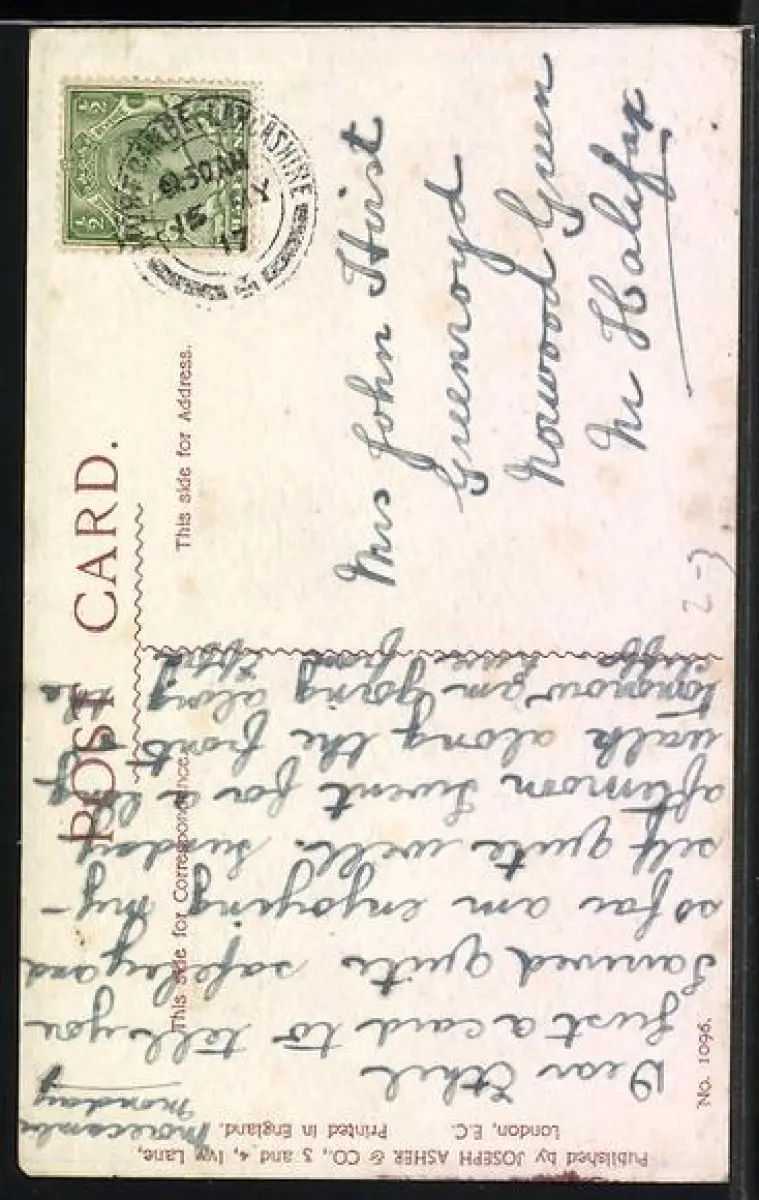 POST CARD.
This side for Correspondence.
This side for Address.
½ ½
MORECAMBE·LANCASHIRE
9.30 AM
15
Mrs John Hirst
Greenroyd
Norwood Green
Nr Halifax
2-3
Morecambe
Monday
Dear Ethel
Just a card to tell you
I arrived quite safely and
so far am enjoying my-
self quite well. Sunday
afternoon I went for a
walk along the front
tomorrow am going along the
cliffs from
Published by JOSEPH ASHER & CO., 3 and 4, Ivy Lane,
London, E.C. Printed in England.
No. 1096.